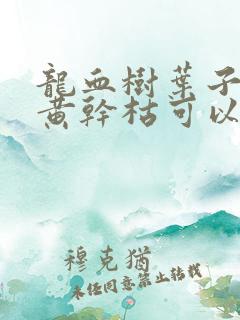 龍血樹葉子
黃幹枯可以
穆克猶
未经同意禁止转载